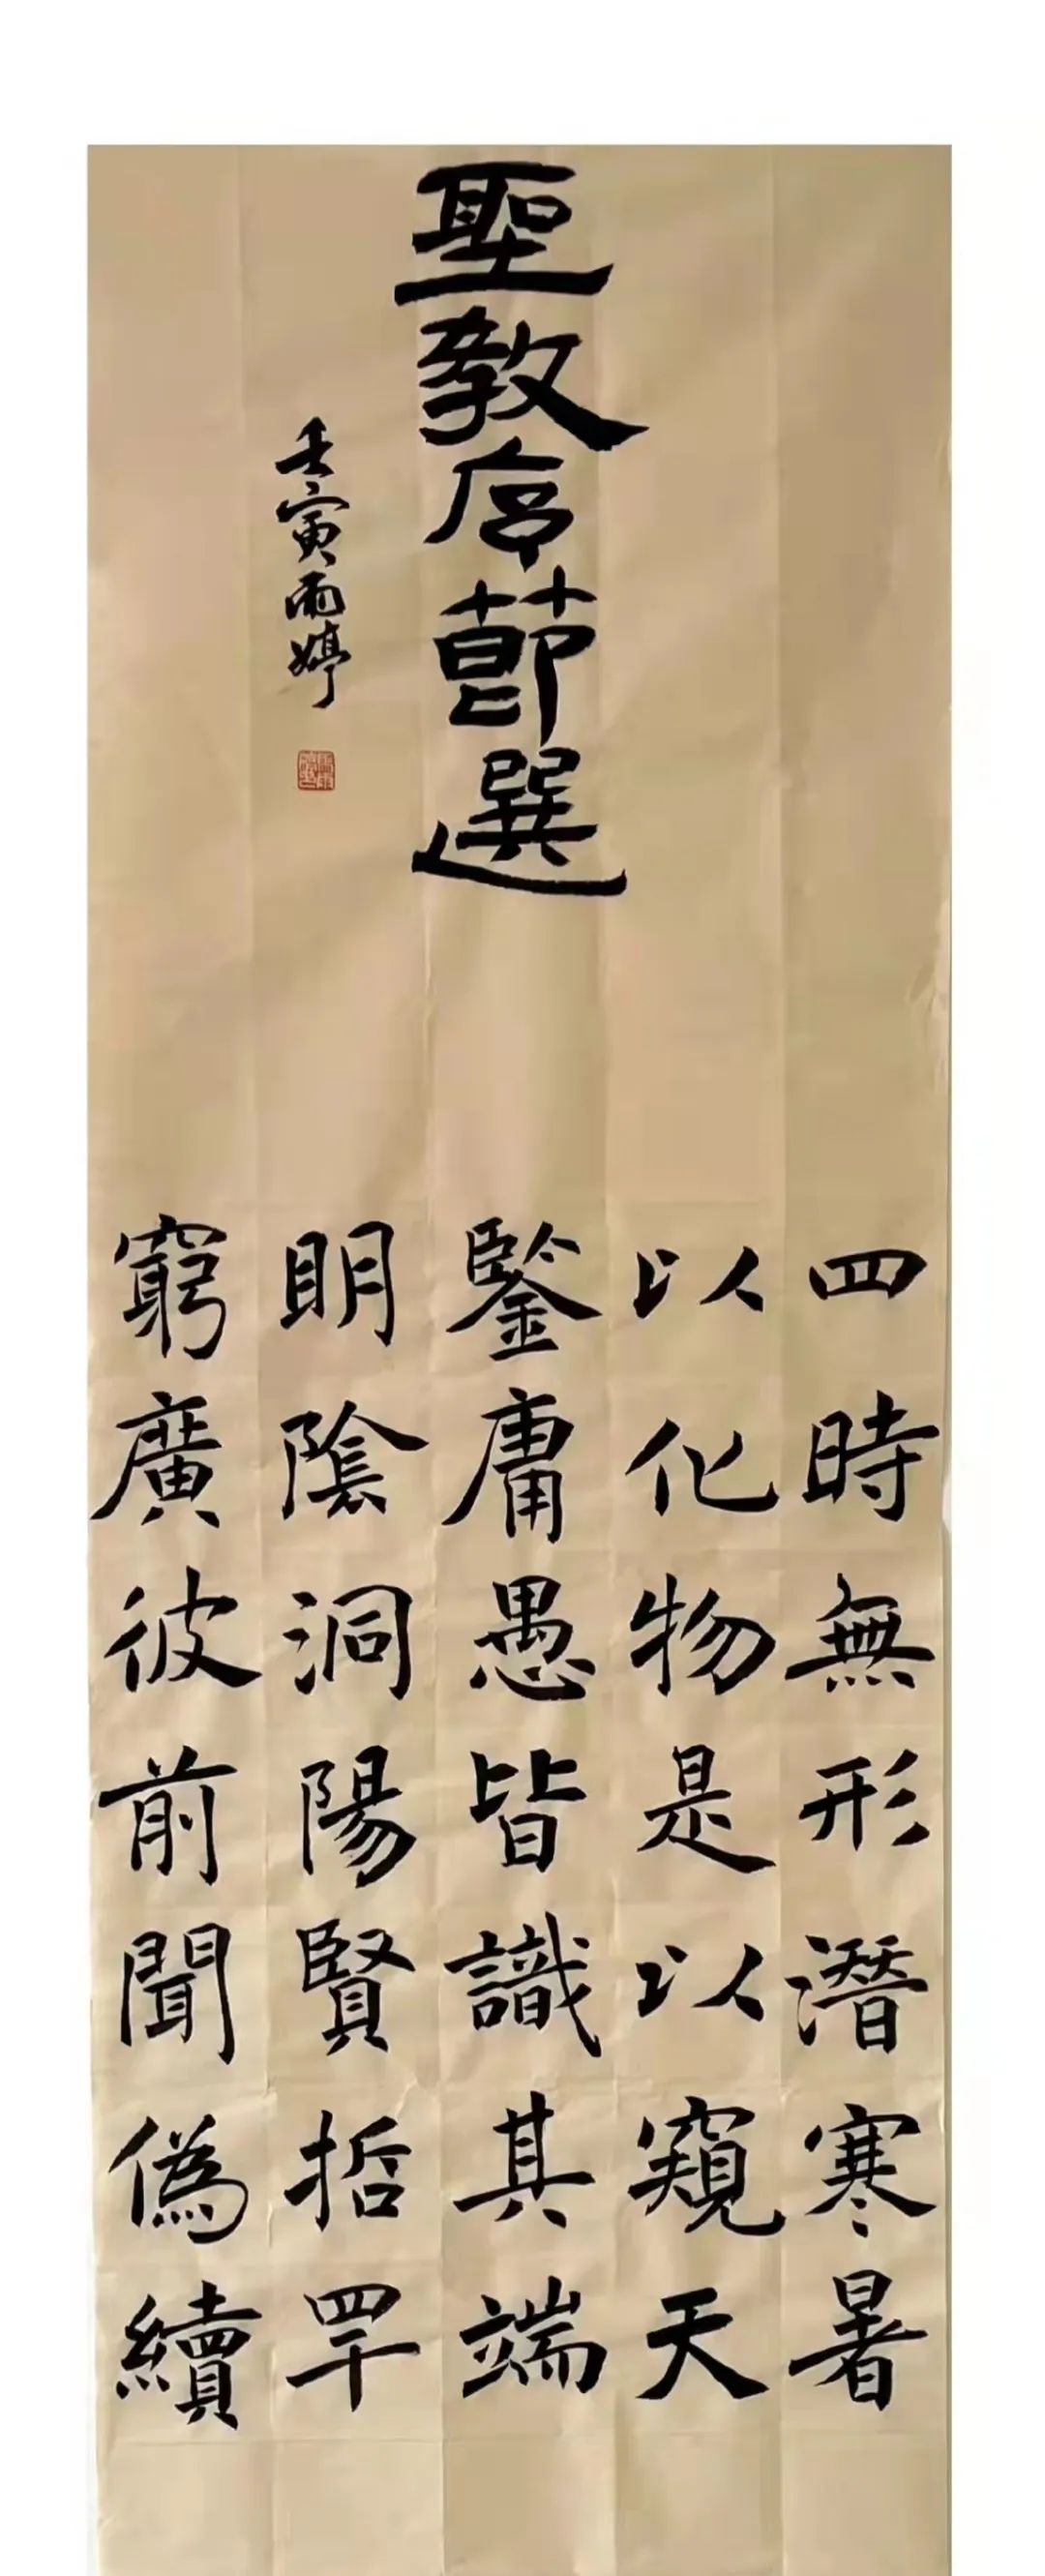 聖教序節選
壬寅雨婷
四時無形潛寒暑
以化物是以窺天
鑒庸愚皆識其端
明陰洞陽賢哲罕
窮廣彼前聞偽續